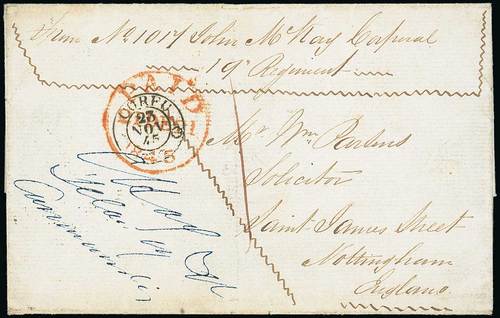 From No 1017 John McKay Corporal
19th Regiment
PAID
CORFU
23
NOV
45
Mr Wm Parsons
Solicitor
Saint James Street
Nottingham
England